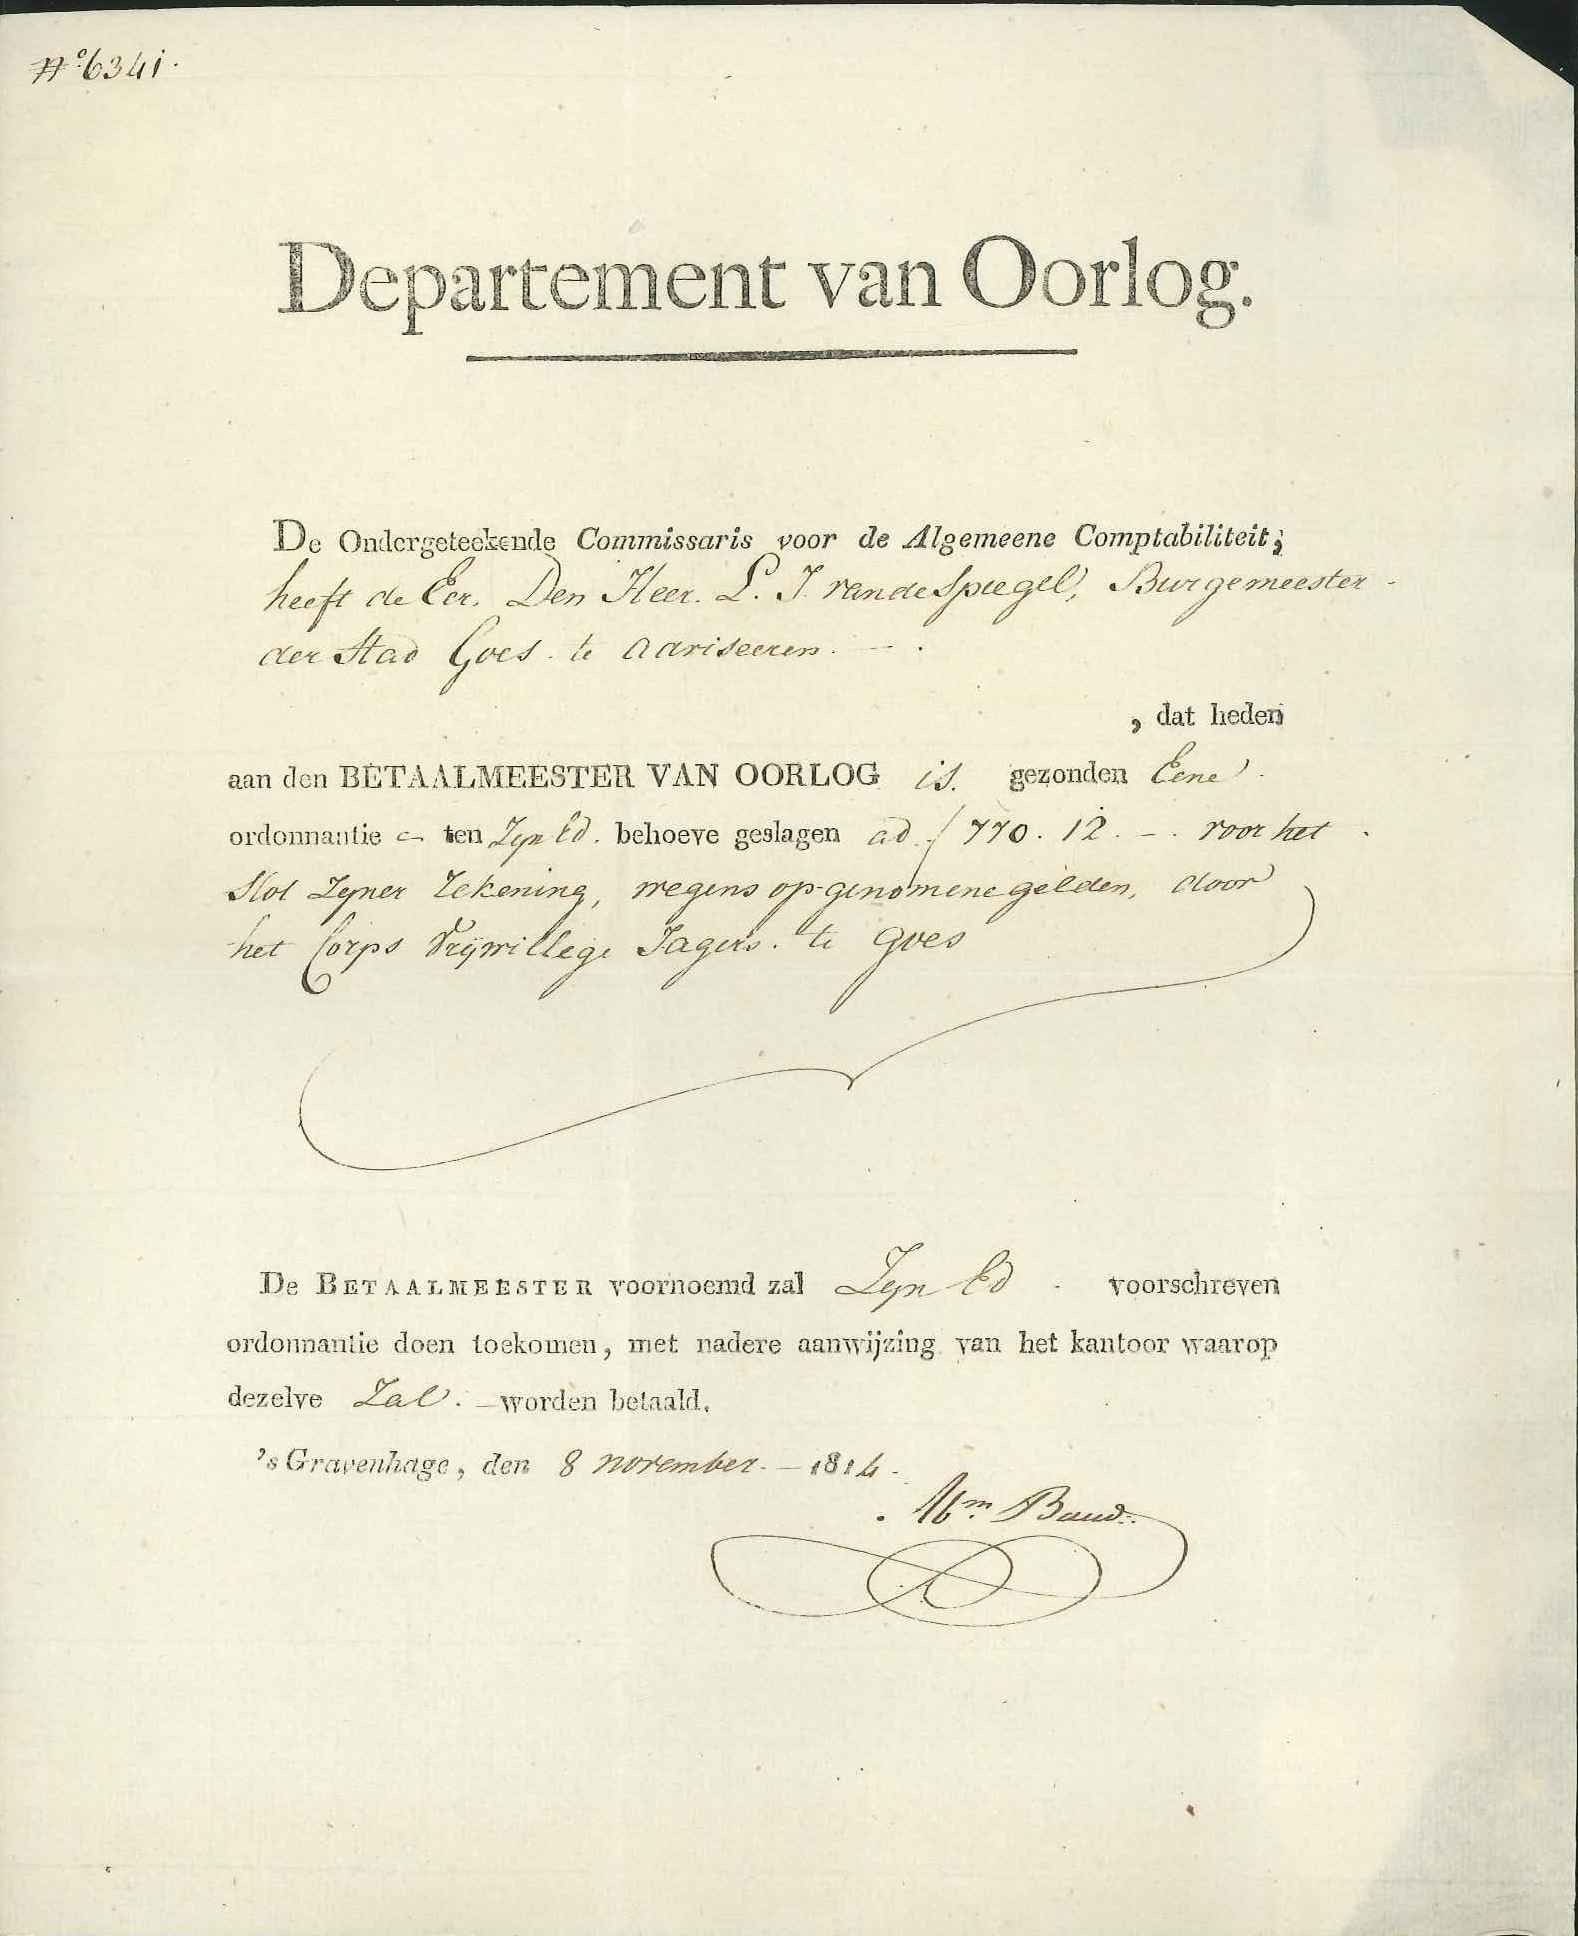 N.o 6341.
Departement van Oorlog.
De Ondergeteekende Commissaris voor de Algemeene Comptabiliteit;
heeft de Eer. Den Heer. L. J. van de Spiegel, Burgemeester
der Stad Goes. te adviseeren. — .
, dat heden
aan den BETAALMEESTER VAN OORLOG is. gezonden Eene
ordonnantie ten Zyn Ed. behoeve geslagen ad. ƒ 770. 12. - . voor het
Slot Zyner Rekening, wegens op-genomene gelden, door
het Corps Vrijwillege Jagers. te Goes
De BETAALMEESTER voornoemd zal Zyn Ed. voorschreven
ordonnantie doen toekomen, met nadere aanwijzing van het kantoor waarop
dezelve Zal. — worden betaald.
's Gravenhage, den 8 november. — 1814.
Wm. Baud.